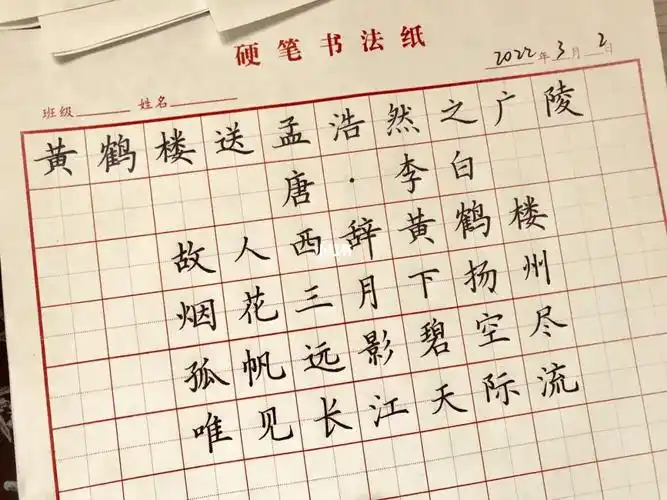 硬笔书法纸
班级 姓名 2022年3月2日
黄鹤楼送孟浩然之广陵
唐·李白
故人西辞黄鹤楼
烟花三月下扬州
孤帆远影碧空尽
唯见长江天际流